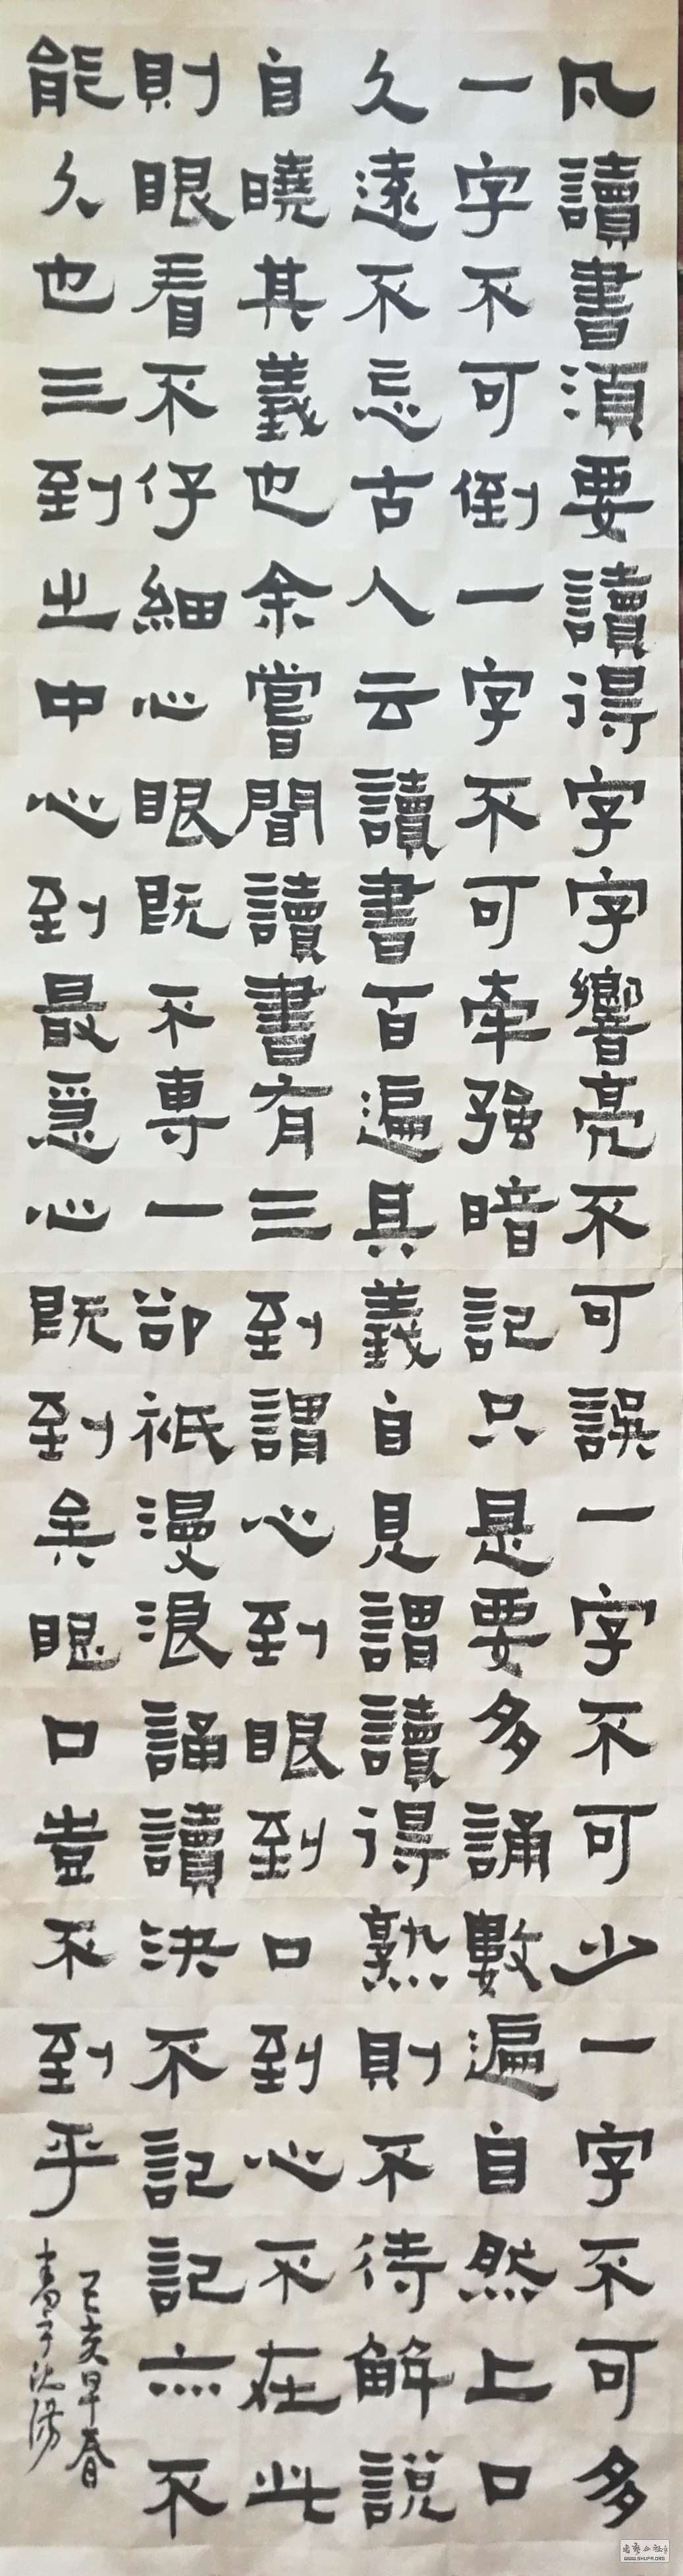 凡讀書須要讀得字字響亮不可誤一字不可少一字不可多
一字不可倒一字不可牽强暗記只是要多誦數遍自然上口
久遠不忘古人云讀書百遍其義自見謂讀得熟則不待解說
自曉其義也余嘗聞讀書有三到謂心到眼到口到心不在此
則眼看不仔細心眼既不專一卻祇漫浪誦讀決不記記亦不
能久也三到之中心到最急心既到矣眼口豈不到乎
己亥早春
書于沈陽
WWW.SHUFA.ORG